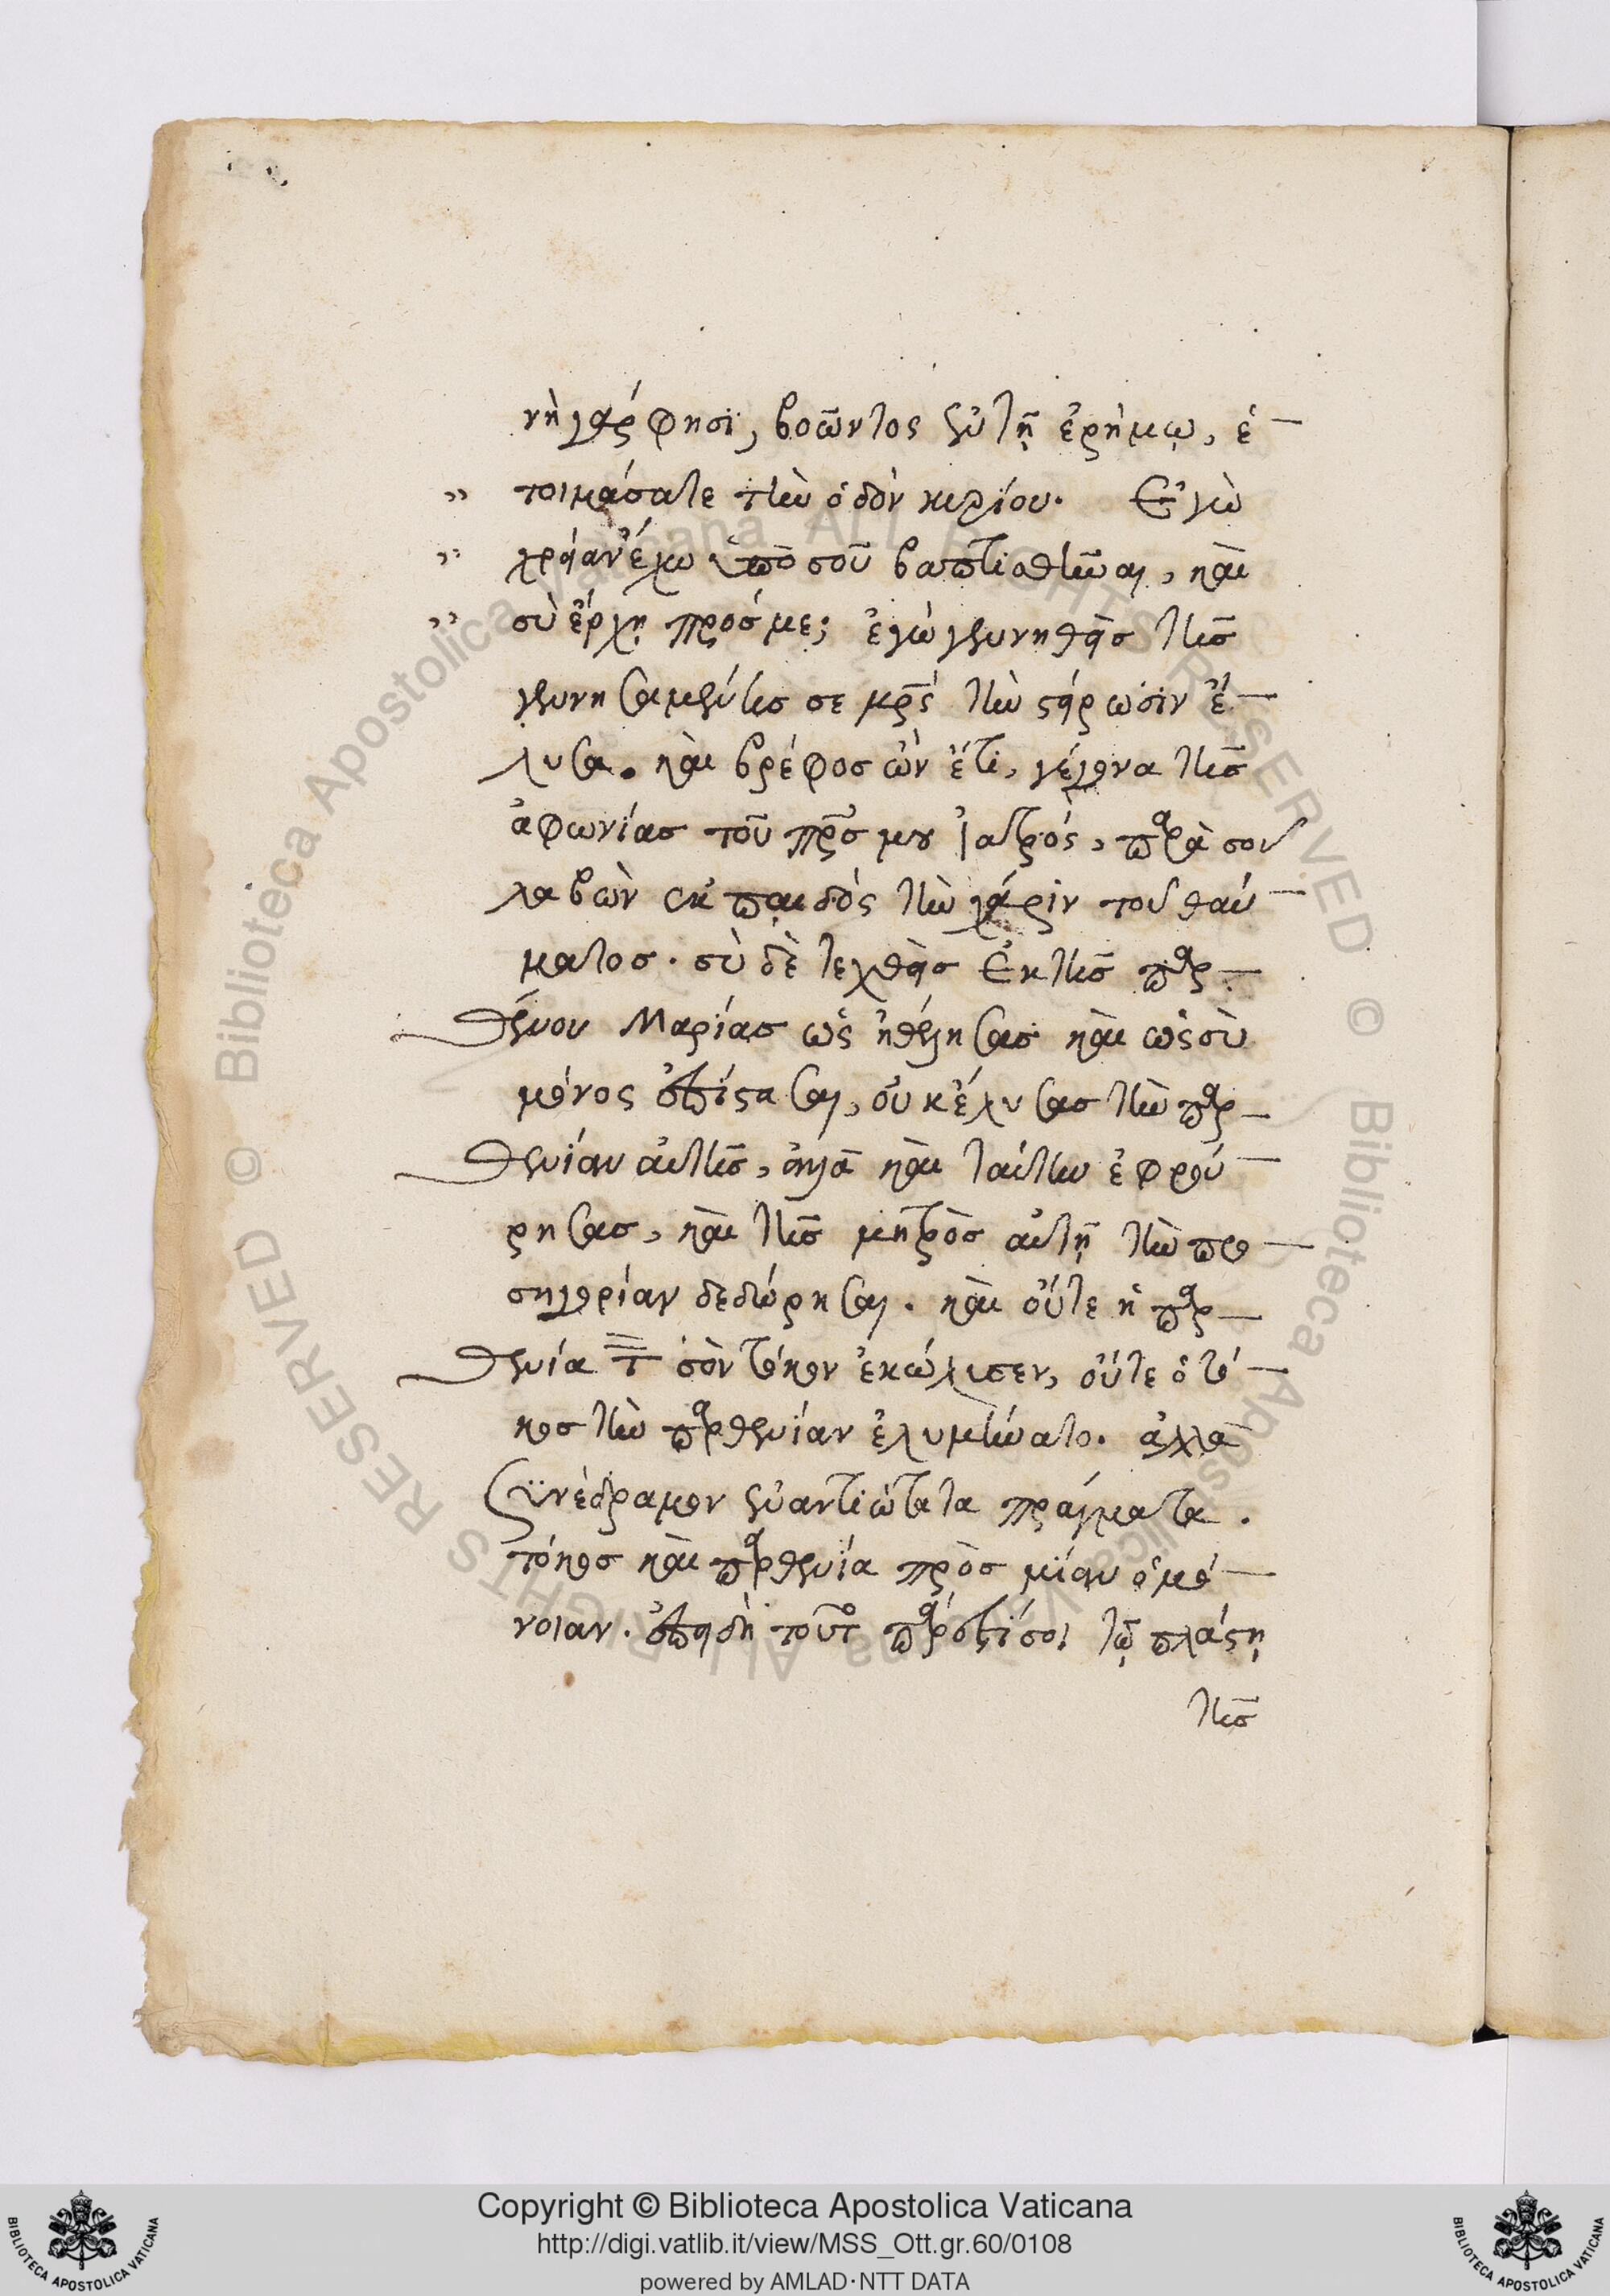 νὴ γὰρ φησὶ, βοῶντος ἐν τῇ ἐρήμῳ, ἑ-
" τοιμάσατε τὴν ὁδὸν κυρίου. Ἐγὼ
" χρείαν ἔχω ὑπὸ σοῦ βαπτισθῆναι, καὶ
" σὺ ἔρχῃ πρός με; ἐγὼ γεννηθεὶς τῆς
γεννησαμένης σε μρς τὴν στείρωσιν ἔ-
λυσα. καὶ βρέφος ὢν ἔτι, γέγονα τῆς
ἀφωνίας τοῦ πρς μου ἰατρός, παρὰ σοῦ
λαβὼν ἐκ παιδὸς τὴν χάριν τοῦ θαύ-
ματος. σὺ δὲ τεχθεὶς ἐκ τῆς παρ-
θένου Μαρίας ὡς ἠθέλησας καὶ ὡς σὺ
μόνος ἐπίστασαι, οὐκ ἔλυσας τὴν παρ-
θενίαν αὐτῆς, ἀλλὰ καὶ ταύτην ἐφρού-
ρησας, καὶ τῆς μητρὸς αὐτῇ τὴν προ-
σηγορίαν δεδώρησαι. καὶ οὔτε ἡ παρ-
θενία τὸν σὸν τόκον ἐκώλυσεν, οὔτε ὁ τό-
κος τὴν παρθενίαν ἐλυμήνατο. ἀλλὰ
συνέδραμον ἐναντιώτατα πράγματα.
τόκος καὶ παρθενία πρὸς μίαν ὁμό-
νοιαν. ἐπειδὴ τοῦτο πάρεστί σοι τῷ πλάστῃ
τῆς
Copyright © Biblioteca Apostolica Vaticana
http://digi.vatlib.it/view/MSS_Ott.gr.60/0108
powered by AMLAD·NTT DATA